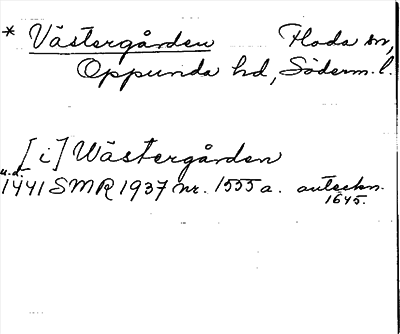 * Västergården Floda sn,
Oppunda hd, Söderm. l.
[i] Wästergården
u.d.
1441 SMR 1937 nr. 1555a. anteckn.
1645.